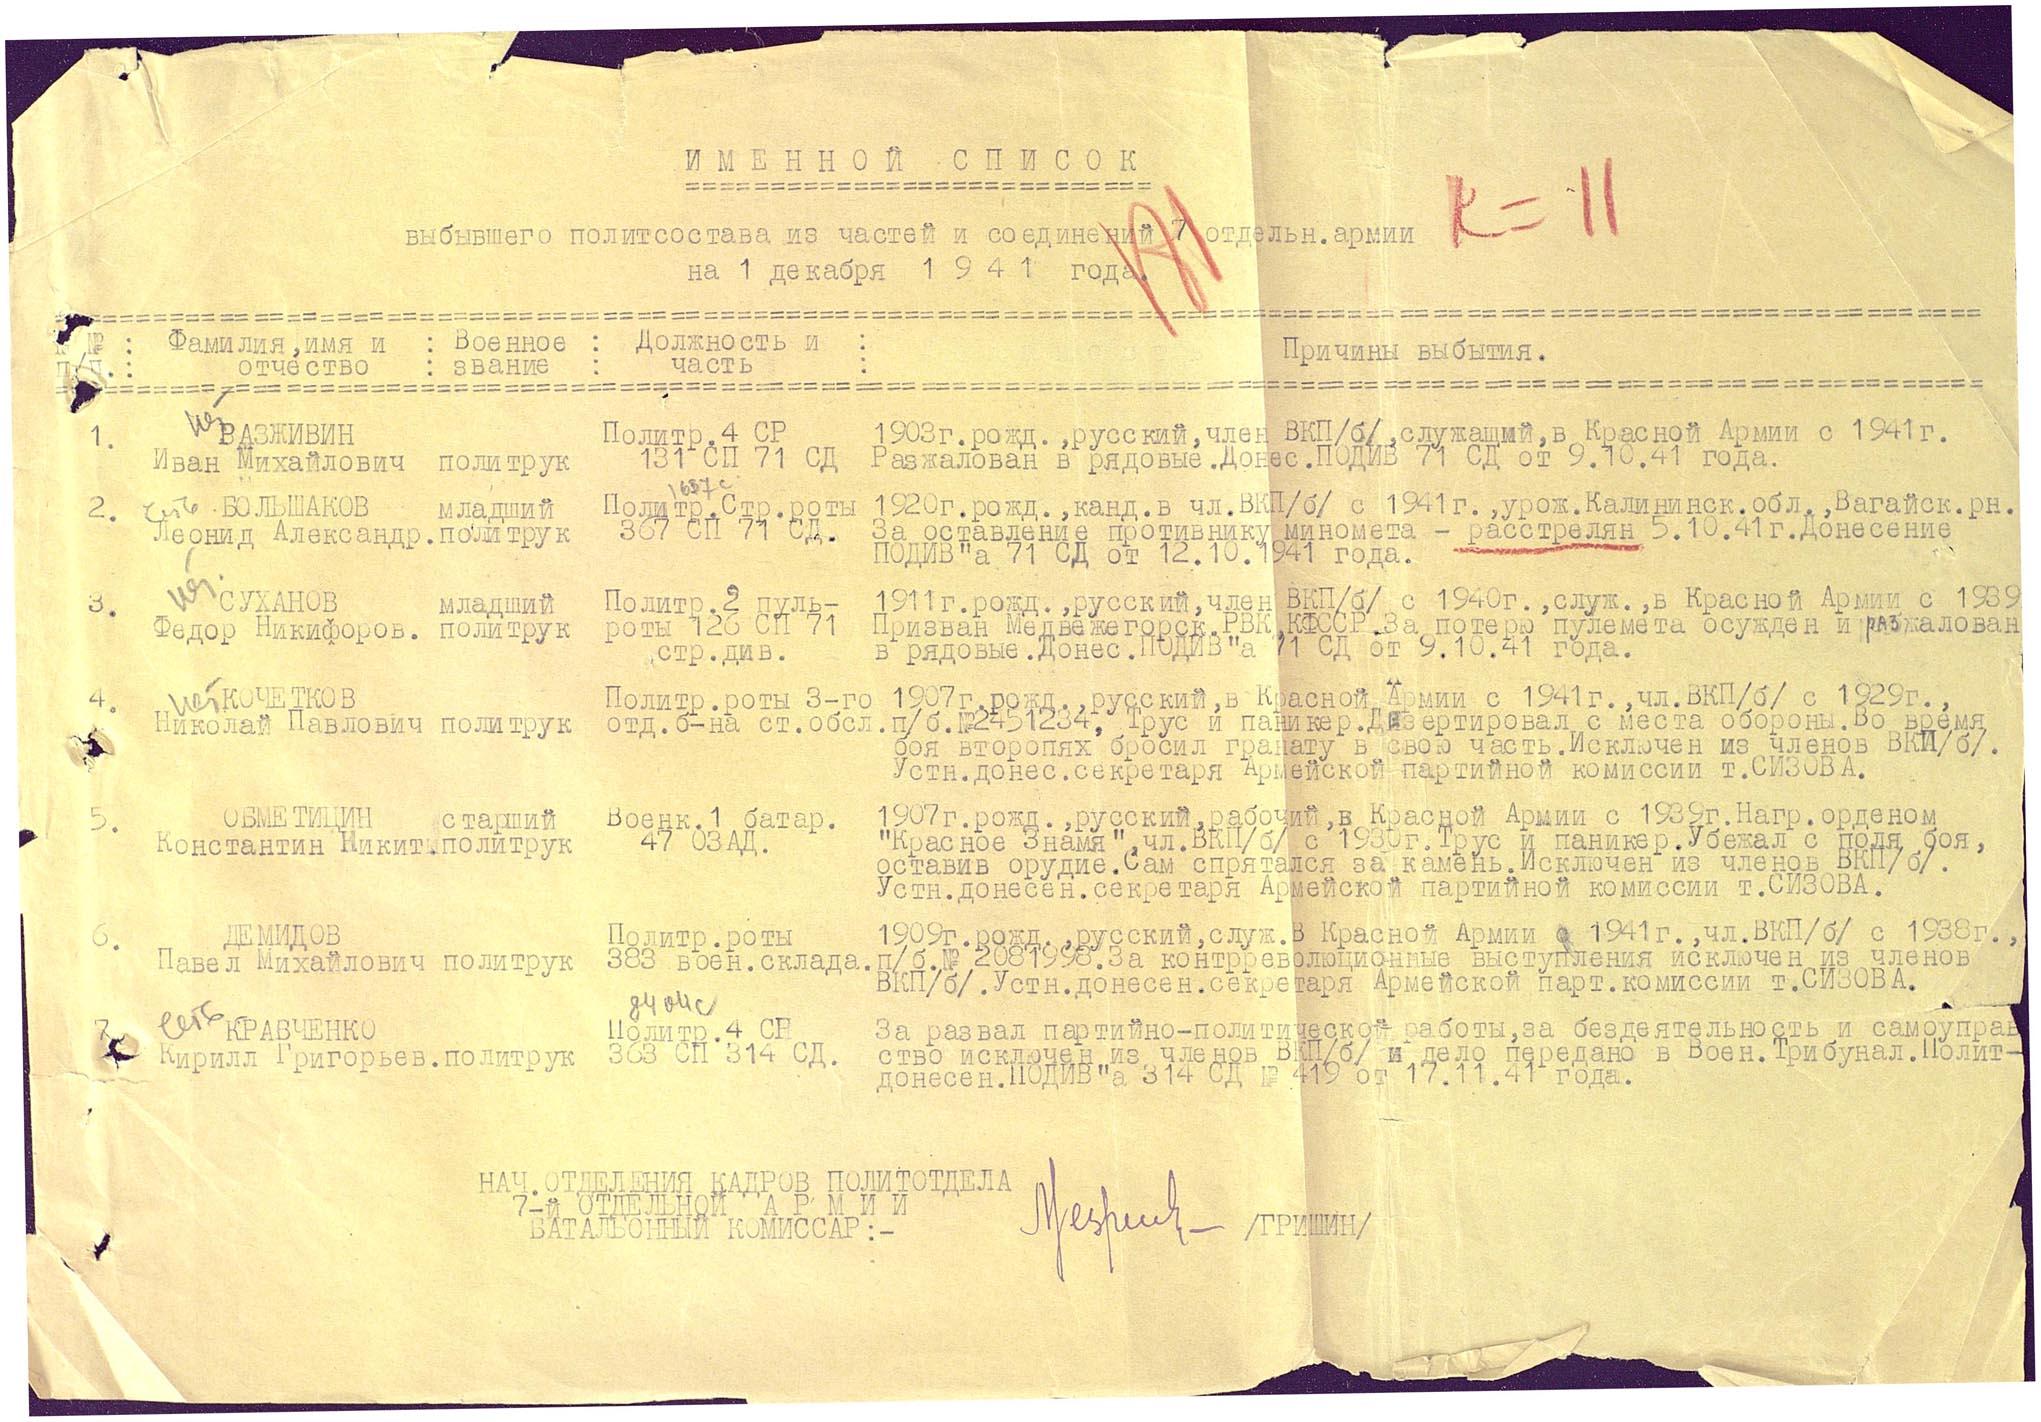 ИМЕННОЙ СПИСОК
К = 11
выбывшего политсостава из частей и соединений 7 отдельн.армии
на 1 декабря 1941 года.
№ п/п. : Фамилия,имя и : Военное : Должность и : Причины выбытия.
отчество : звание : часть :
нет
1. ВАЗЖИВИН Политр.4 СР 1903г.рожд.,русский,член ВКП/б/,служащий,в Красной Армии с 1941г.
Иван Михайлович политрук 131 СП 71 СД Разжалован в рядовые.Донес.ПОДИВ 71 СД от 9.10.41 года.
2. есть БОЛЬШАКОВ младший Политр.Стр.роты 1920г.рожд.,канд.в чл.ВКП/б/ с 1941г.,урож.Калининск.обл.,Вагайск.рн.
Леонид Александр.политрук 367 СП 71 СД. За оставление противнику миномета - расстрелян 5.10.41г.Донесение
ПОДИВ"а 71 СД от 12.10.1941 года.
нет
3. СУХАНОВ младший Политр.2 пуль- 1911г.рожд.,русский,член ВКП/б/ с 1940г.,служ.,в Красной Армии с 1939
Федор Никифоров. политрук роты 126 СП 71 Призван Медвежегорск.РВК,КФССР.За потерю пулемета осужден и разжалован
стр.див. в рядовые.Донес.ПОДИВ"а 71 СД от 9.10.41 года.
4. нет КОЧЕТКОВ Политр.роты 3-го 1907г.рожд.,русский,в Красной Армии с 1941г.,чл.ВКП/б/ с 1929г.,
Николай Павлович политрук отд.б-на ст.обсл.п/б.№2451234, Трус и паникер.Дизертировал с места обороны.Во время
боя второпях бросил гранату в свою часть.Исключен из членов ВКП/б/.
Устн.донес.секретаря Армейской партийной комиссии т.СИЗОВА.
5. ОБМЕТИЦИН старший Военк.1 батар. 1907г.рожд.,русский,рабочий,в Красной Армии с 1939г.Нагр.орденом
Константин Никит.политрук 47 ОЗАД. "Красное Знамя",чл.ВКП/б/ с 1930г.Трус и паникер.Убежал с поля боя,
оставив орудие.Сам спрятался за камень.Исключен из членов ВКП/б/.
Устн.донесен.секретаря Армейской партийной комиссии т.СИЗОВА.
6. ДЕМИДОВ Политр.роты 1909г.рожд.,русский,служ.В Красной Армии с 1941г.,чл.ВКП/б/ с 1938г.,
Павел Михайлович политрук 383 воен.склада.п/б.№ 2081998.За контрреволюционные выступления исключен из членов
ВКП/б/.Устн.донесен.секретаря Армейской парт.комиссии т.СИЗОВА.
7. есть КРАВЧЕНКО Политр.4 СР За развал партийно-политической работы,за бездеятельность и самоуправ
Кирилл Григорьев.политрук 363 СП 314 СД. ство исключен из членов ВКП/б/ и дело передано в Воен.Трибунал.Полит-
донесен.ПОДИВ"а 314 СД № 419 от 17.11.41 года.
НАЧ.ОТДЕЛЕНИЯ КАДРОВ ПОЛИТОТДЕЛА
7-й ОТДЕЛЬНОЙ АРМИИ
БАТАЛЬОННЫЙ КОМИССАР:- /ГРИШИН/